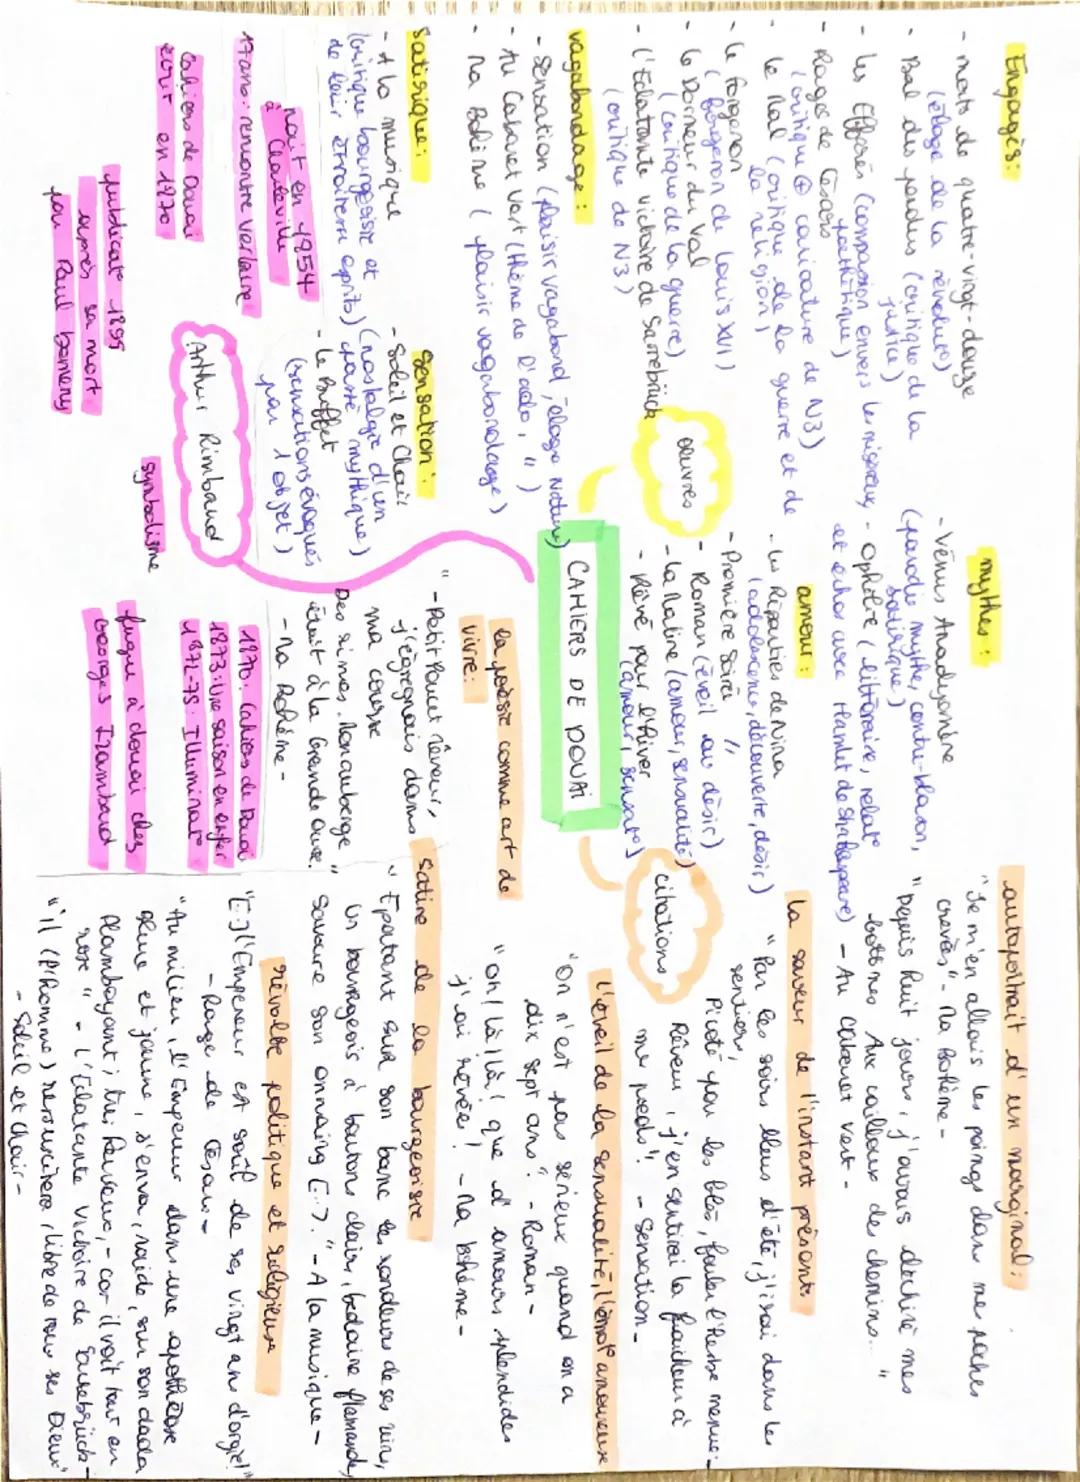 Engagés :
- morts de quatre-vingt-douze
(éloge de la révolu°)
- Bal des pendus (critique de la
justice)
- Les Effarés (compassion envers les miséreux,
pathétique)
- Rages de Césars
(critique ⊕ caricature de N3)
- le Mal (critique de la guerre et de
la religion)
- le forgeron
(forgeron de Louis XVI)
- le Dormeur du Val
(critique de la guerre)
- l'Eclatante victoire de Sarrebrück
(critique de N3)
vagabondage :
- Sensation (plaisir vagabond, éloge Nature)
- Au Cabaret Vert (thème de l'ado, ")
- Ma Bohème (plaisir vagabondage)
satirique :
- A la musique
(critique bourgeoisie et
de leur étroitesse esprits)
sensation :
- Soleil et Chair
(nostalgie d'un
passé mythique)
- le Buffet
(sensations évoqués
par 1 objet)
mythes :
- Vénus Anadyomène
(parodie mythe, contre-blason,
satirique)
- Ophélie (littéraire, relat°
et échos avec Hamlet de Shakespeare)
amour :
- Les Réparties de Nina
(adolescence, découverte, désir)
- Première Soirée
"
- Roman (éveil au désir)
- la Maline (amour, sensualité)
- Rêvé pour l'hiver
(amour, sensat°)
oeuvres
CAHIERS DE DOUAI
citations
Arthur Rimbaud
naît en 1854
à Charleville
17 ans : rencontre Verlaine
Cahiers de Douai
écrit en 1870
publicat° 1895
après sa mort
par Paul Demeny
symbolisme
1870 : Cahiers de Douai
1873 : Une saison en enfer
1872-75 : Illuminat°
fugue à douai chez
Georges Izambard
la poésie comme art de
vivre :
" - Petit Poucet rêveur,
j'égrenais dans
ma course
Des rimes. Mon auberge
était à la Grande Ourse. "
- Ma Bohème -
autoportrait d'un marginal :
"Je m'en allais les poings dans mes poches
crevées" - Ma Bohème -
"Depuis huit jours, j'avais déchiré mes
bottines Aux cailloux des chemins... "
- Au Cabaret vert -
la saveur de l'instant présent
" Par les soirs bleus d'été, j'irai dans les
sentiers,
Picoté par les blés, fouler l'herbe menue :
Rêveur, j'en sentirai la fraîcheur à
mes pieds". - Sensation -
l'éveil de la sensualité, l'émot° amoureuse
"On n'est pas sérieux quand on a
dix sept ans". - Roman -
"oh ! là là ! que d'amours splendides
j'ai rêvées ! - Ma bohème -
satire de la bourgeoisie
" Epatant sur son banc les rondeurs de ses reins,
Un bourgeois à boutons clairs, bedaine flamande,
Savoure son onnaing [...]. " - A la musique -
révolte politique et religieuse
"[...] l'Empereur est soûl de ses vingt ans d'orgie !"
- Rage de Césars -
"Au milieu, l'Empereur dans une apothéose
bleue et jaune, s'en va, raide, sur son dada
Flamboyant ; très heureux, - car il voit tout en
rose " - l'Eclatante victoire de Sarrebrück -
"il (l'Homme) ressuscitera, libre de tous ses Dieux"
- Soleil et Chair -